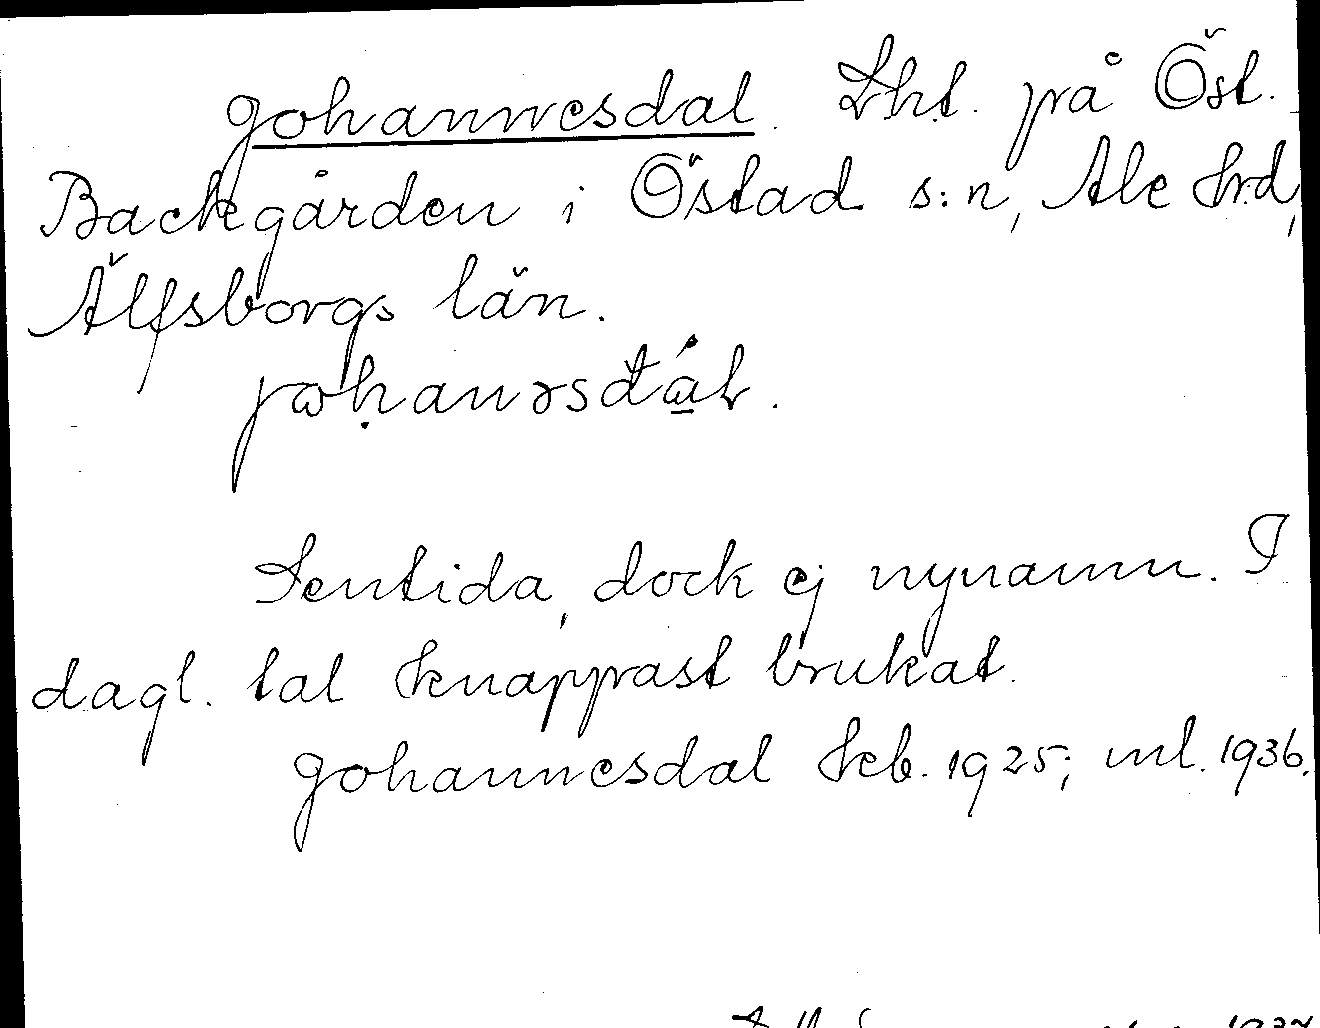 Johannesdal. Lht. på Öst.
Backgården i Östad s:n, Ale hrd,
Älfsborgs län.
johanəsdál.
Sentida, dock ej nynamn. I
dagl. tal knappast brukat.
Johannesdal kcb. 1925; ml. 1936.
1937